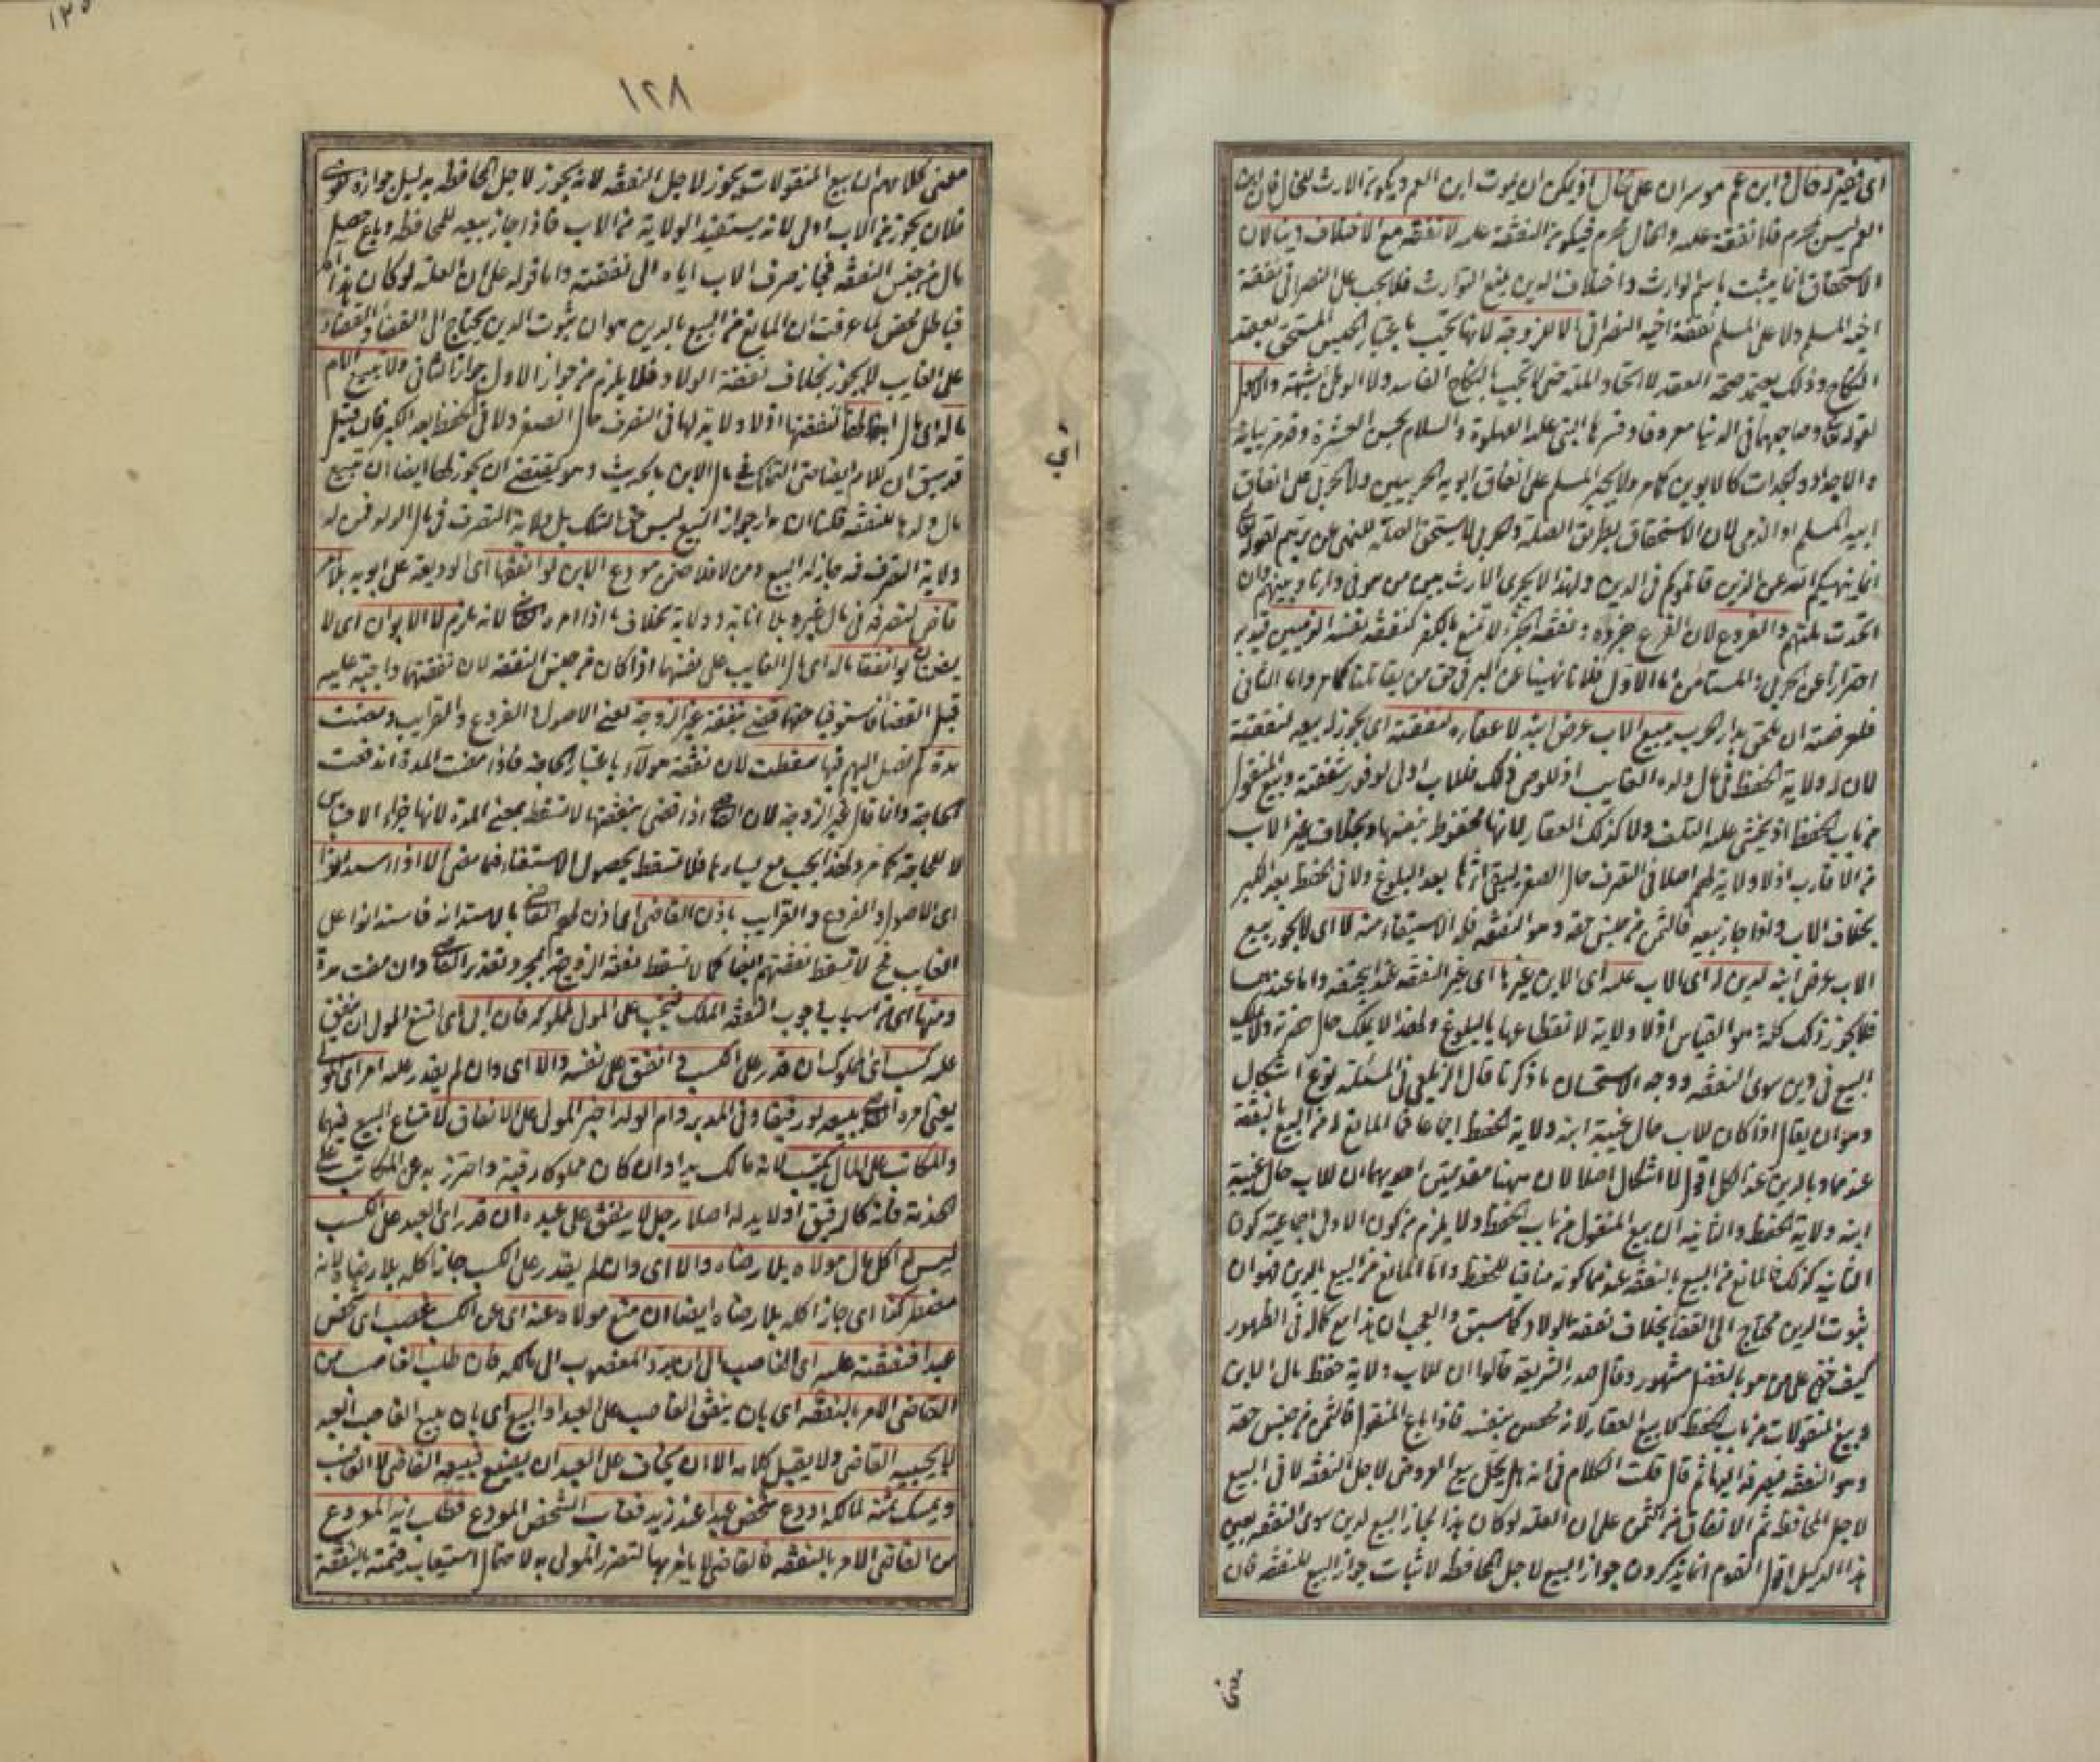 اى فقير له خال وابن عم موسران على الخال اذ يمكن ان يموت ابن العم ويكون الارث للخال فان ابن
العم ليس بمحرم فلا نفقة عليه والخال محرم فيكون النفقة عليه لا نفقة مع الاختلاف دينا لان
الاستحقاق انما يثبت باسم الوارث واختلاف الدين يمنع التوارث فلا يجب على النصرانى نفقة
اخيه المسلم ولا على المسلم نفقة اخيه النصرانى الا للزوجة لانها تجب باعتبار الحبس المستحق بعقد
النكاح وذلك يعتمد صحة العقد لا اتحاد الملة حتى لا تجب بالنكاح الفاسد ولا الوطئ بشبهة والاصول
لقوله تعالى وصاحبهما فى الدنيا معروفا وفسرها النبى عليه الصلوة والسلام بحسن العشرة وقد مر بيانه
والاجداد والجدات كالابوين كما مر ولا يجبر المسلم على انفاق ابويه الحربيين ولا الحربى على انفاق
ابيه المسلم او الذمى لان الاستحقاق بطريق الصلة والحربى لا يستحق الصلة للنهى عن برهم لقوله تعالى
انما ينهيكم الله عن الذين قاتلوكم فى الدين ولهذا لا يجرى الارث بين من هو فى دارنا وبينهم وان
اتحدت ملتهم والفروع لان الفرع جزؤه ونفقة الجزء لا تمتنع بالكفر كنفقة نفسه الذميين قيد به
احترازا عن الحربى والمستأمن اما الاول فلانا نهينا عن البر فى حق من يقاتلنا كما مر واما الثانى
فلعرضته ان يلتحق بدار الحرب يبيع الاب عرض ابنه لا عقاره لنفقته اى يجوز له بيعه لنفقته
لان له ولاية الحفظ فى مال ولده الغايب اذ للوصى ذلك فللاب اولى لوفور شفقته وبيع المنقول
من باب الحفظ اذ يخشى عليه التلف ولا كذلك العقار لانها محفوظ بنفسها وبخلاف غير الاب
من الاقارب اذ لا ولاية لهم اصلا فى التصرف حال الصغر ليبقى اثرها بعد البلوغ ولا فى الحفظ بعد الكبر
بخلاف الاب واذا جاز بيعه فالثمن من جنس حقه وهو النفقة فله الاستيفاء منه لا اى لا يجوز بيع
الاب عرض ابنه لدين له اى للاب عليه اى الابن غيرها اى غير النفقة عند ابى حنيفة واما عندهما
فلا يجوز ذلك كله وهو القياس اذ لا ولاية له لانقطاعها بالبلوغ ولهذا لا يملك حال حضرته ولا يملك
البيع فى دين سوى النفقة ووجه الاستحسان ما ذكرنا قال الزيلعى فى المسئلة نوع اشكال
وهو ان يقال اذا كان للاب حال غيبة ابنه ولاية الحفظ اجماعا فما المانع له من البيع بالنفقة
عندهما وبالدين عند الكل اقول لا اشكال اصلا لان ههنا مقدمتين احديهما ان للاب حال غيبة
ابنه ولاية الحفظ والثانية ان بيع المنقول من باب الحفظ ولا يلزم من كون الاول اجماعية كون
الثانية كذلك فالمانع من البيع بالنفقة عندهما كونه منافيا للحفظ واما المانع من البيع بالدين فهو ان
ثبوت الدين محتاج الى القضاء بخلاف نفقة الولاد كما سبق والعجب ان هذا مع كماله فى الظهور
كيف خفى على من هو بالفضل مشهور وقال صدر الشريعة قالوا ان للاب ولاية حفظ مال الابن
وبيع المنقولات من باب الحفظ لا بيع العقار لانه محصن بنفسه فاذا باع المنقول فالثمن من جنس حقه
وهو النفقة فيصرفه اليها ثم قال قلت الكلام فى انه هل يحل بيع العروض لاجل النفقة لا فى البيع
لاجل المحافظة ثم الانفاق من الثمن على ان العلة لو كان هذا لجاز البيع لدين سوى النفقة بعين
هذا الدليل اقول القوم انما يذكرون جواز البيع لاجل المحافظة لاثبات جواز البيع للنفقة فان
١٢٨
معنى كلامهم ان بيع المنقولات يجوز لاجل النفقة لانه يجوز لاجل المحافظة بدليل جوازه للوصى
فلان يجوز من الاب اولى لانه يستفيد الولاية من الاب فاذا جاز بيعه للمحافظة وباع حصل
مال من جنس النفقة فجاز صرف الاب اياه الى نفقته واما قوله على ان العلة لو كان هذا الخ
فباطل محض لما عرفت ان المانع من البيع بالدين هو ان ثبوت الدين يحتاج الى القضاء والقضاء
على الغايب لا يجوز بخلاف نفقة الولاد فلا يلزم من جواز الاول جواز الثانى ولا تبيع الام
ماله اى مال ابنها لنفقتها اذ لا ولاية لها فى التصرف حال الصغر ولا فى الحفظ بعد الكبر فان قيل
قد سبق ان للام ايضا حق التملك فى مال الابن بالحديث وهو يقتضى ان يجوز لها ايضا ان تبيع
مال ولدها للنفقة قلنا ان مدار جواز البيع ليس حق التملك بل ولاية التصرف فى مال الولد فمن له
ولاية التصرف فيه جاز له البيع ومن لا فلا ضمن مودع الابن لو انفقها اى الوديعة على ابويه بلا امر
قاض لتصرفه فى مال غيره بلا انابة وولاية بخلاف ما اذا امره القاضى لانه ملزم لا الابوان اى لا
يضمنان لو انفقا ماله اى مال الغايب على نفسهما اذا كان من جنس النفقة لان نفقتهما واجبة عليه
قبل القضاء فاستوفيا حقهما قضى بنفقة غير الزوجة يعنى الاصول والفروع والقرايب ومضت
مدة لم تصل اليهم فيها سقطت لان نفقة هؤلاء باعتبار الحاجة فاذا مضت المدة اندفعت
الحاجة وانما قال غير الزوجة لان القاضى اذا قضى بنفقتها لا تسقط بمضى المدة لانها جزاء الاحتباس
لا للحاجة كما مر ولهذا يجب مع يسارها فلا تسقط بحصول الاستغناء فيما مضى الا اذا استدانوا
اى الاصول والفروع والقرايب باذن القاضى اى اذن لهم القاضى بالاستدانة فاستدانوا على
الغايب فح لا تسقط نفقتهم ايضا كما لا تسقط نفقة الزوجة بمجرد تقدير القاضى وان مضت مدة
ومنها اى من اسباب وجوب النفقة الملك فتجب على المولى لمملوكه فان ابى اى امتنع المولى ان ينفق
عليه كسب اى المملوك ان قدر على الكسب وانفق على نفسه والا اى وان لم يقدر عليه امر اى المولى
يعنى امره القاضى ببيعه لو رقيقا وفى المدبر وام الولد اجبر المولى على الانفاق لامتناع البيع فيهما
والمكاتب على المال يكتسب لانه مالك يدا وان كان مملوكا رقبة واحترز به عن المكاتب على
الخدمة فانه كالرقيق اذ لا يد له اصلا رجل لا ينفق على عبده ان قدر اى العبد على الكسب
ليس له اكل مال مولاه بلا رضاه والا اى وان لم يقدر على الكسب جاز اكله بلا رضاه لانه
مضطر كذا اى جاز اكله بلا رضاه ايضا ان منع مولاه عنه اى عن الكسب غصب اى شخص
عبدا فنفقته عليه اى الغاصب الى ان يرد المغصوب الى مالكه فان طلب الغاصب من
القاضى الامر بالنفقة اى بان ينفق الغاصب على العبد او البيع اى بان يبيع الغاصب العبد
لا يجيبه القاضى ولا يقبل كلامه الا ان يخاف على العبد ان يضيع فيبيعه القاضى لا الغاصب
ويمسك ثمنه لمالكه اودع شخص عبدا عند زيد فغاب الشخص المودع فطلب زيد المودع
من القاضى الامر بالنفقة فالقاضى لا يأمر بها لتضرر المولى به لاحتمال استيعاب قيمته بالنفقة